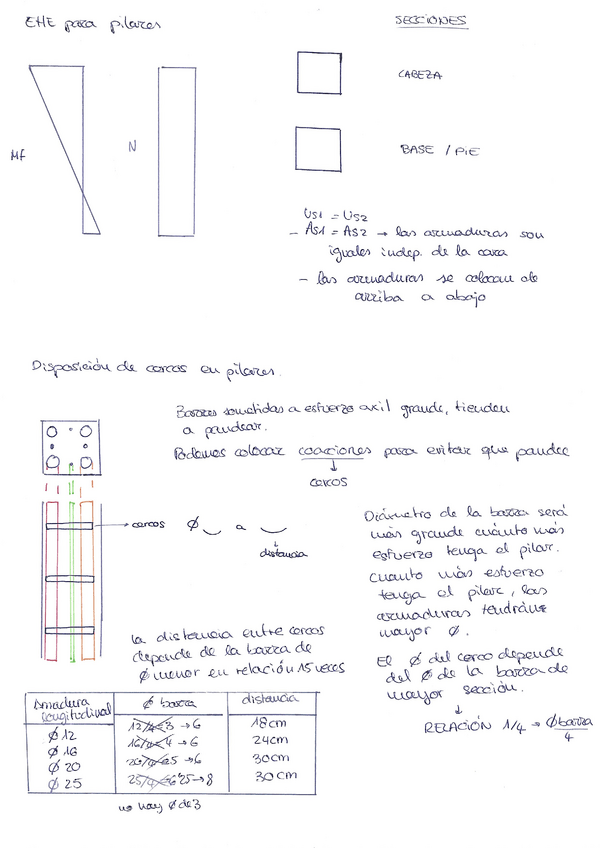 EHE para pilares
SECCIONES
Mf
N
CABEZA
BASE / PIE
Us1 = Us2
- As1 = As2 → las armaduras son
iguales indep. de la cara
- las armaduras se colocan de
arriba a abajo
Disposición de cercos en pilares.
Barras sometidas a esfuerzo axil grande, tienden
a pandear.
Podemos colocar coacciones para evitar que pandee
↓
cercos
→ cercos Ø a
↓
distancia
la distancia entre cercos
depende de la barra de
Ø menor en relación 15 veces
Diámetro de la barra será
más grande cuánto más
esfuerzo tenga el pilar.
cuanto más esfuerzo
tenga el pilar, las
armaduras tendrán
mayor Ø.
El Ø del cerco depende
del Ø de la barra de
mayor sección.
↓
RELACIÓN 1/4 → Øbarra/4
Armadura longitudinal Ø barra distancia
Ø 12 12/4=3 → 6 18cm
Ø 16 16/4=4 → 6 24cm
Ø 20 20/4=5 → 6 30cm
Ø 25 25/4=6'25→8 30cm
no hay Ø de 3